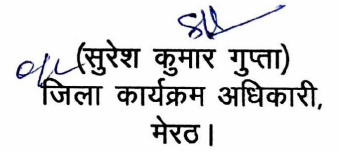 (सुरेश कुमार गुप्ता)
जिला कार्यक्रम अधिकारी,
मेरठ।